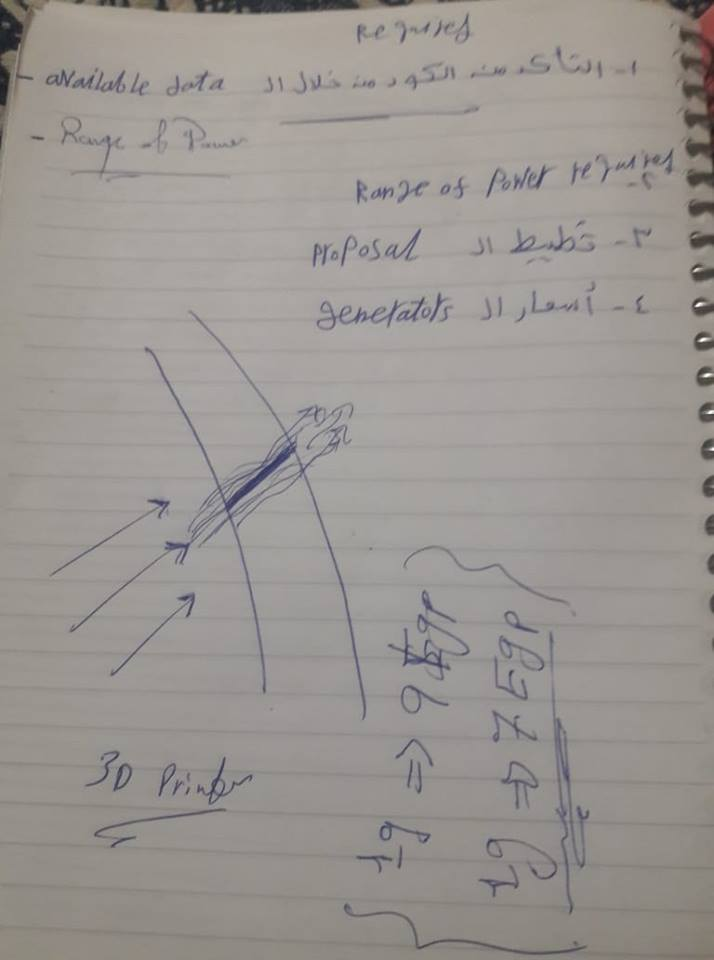 Required
١- التأكد من الكود من خلال ال available data
- Range of Power
٢- Range of Power required
٣- تخطيط ال proposal
٤- أسعار ال generators
3D Printer
1g => 9 Egp
1g => 7 Egp